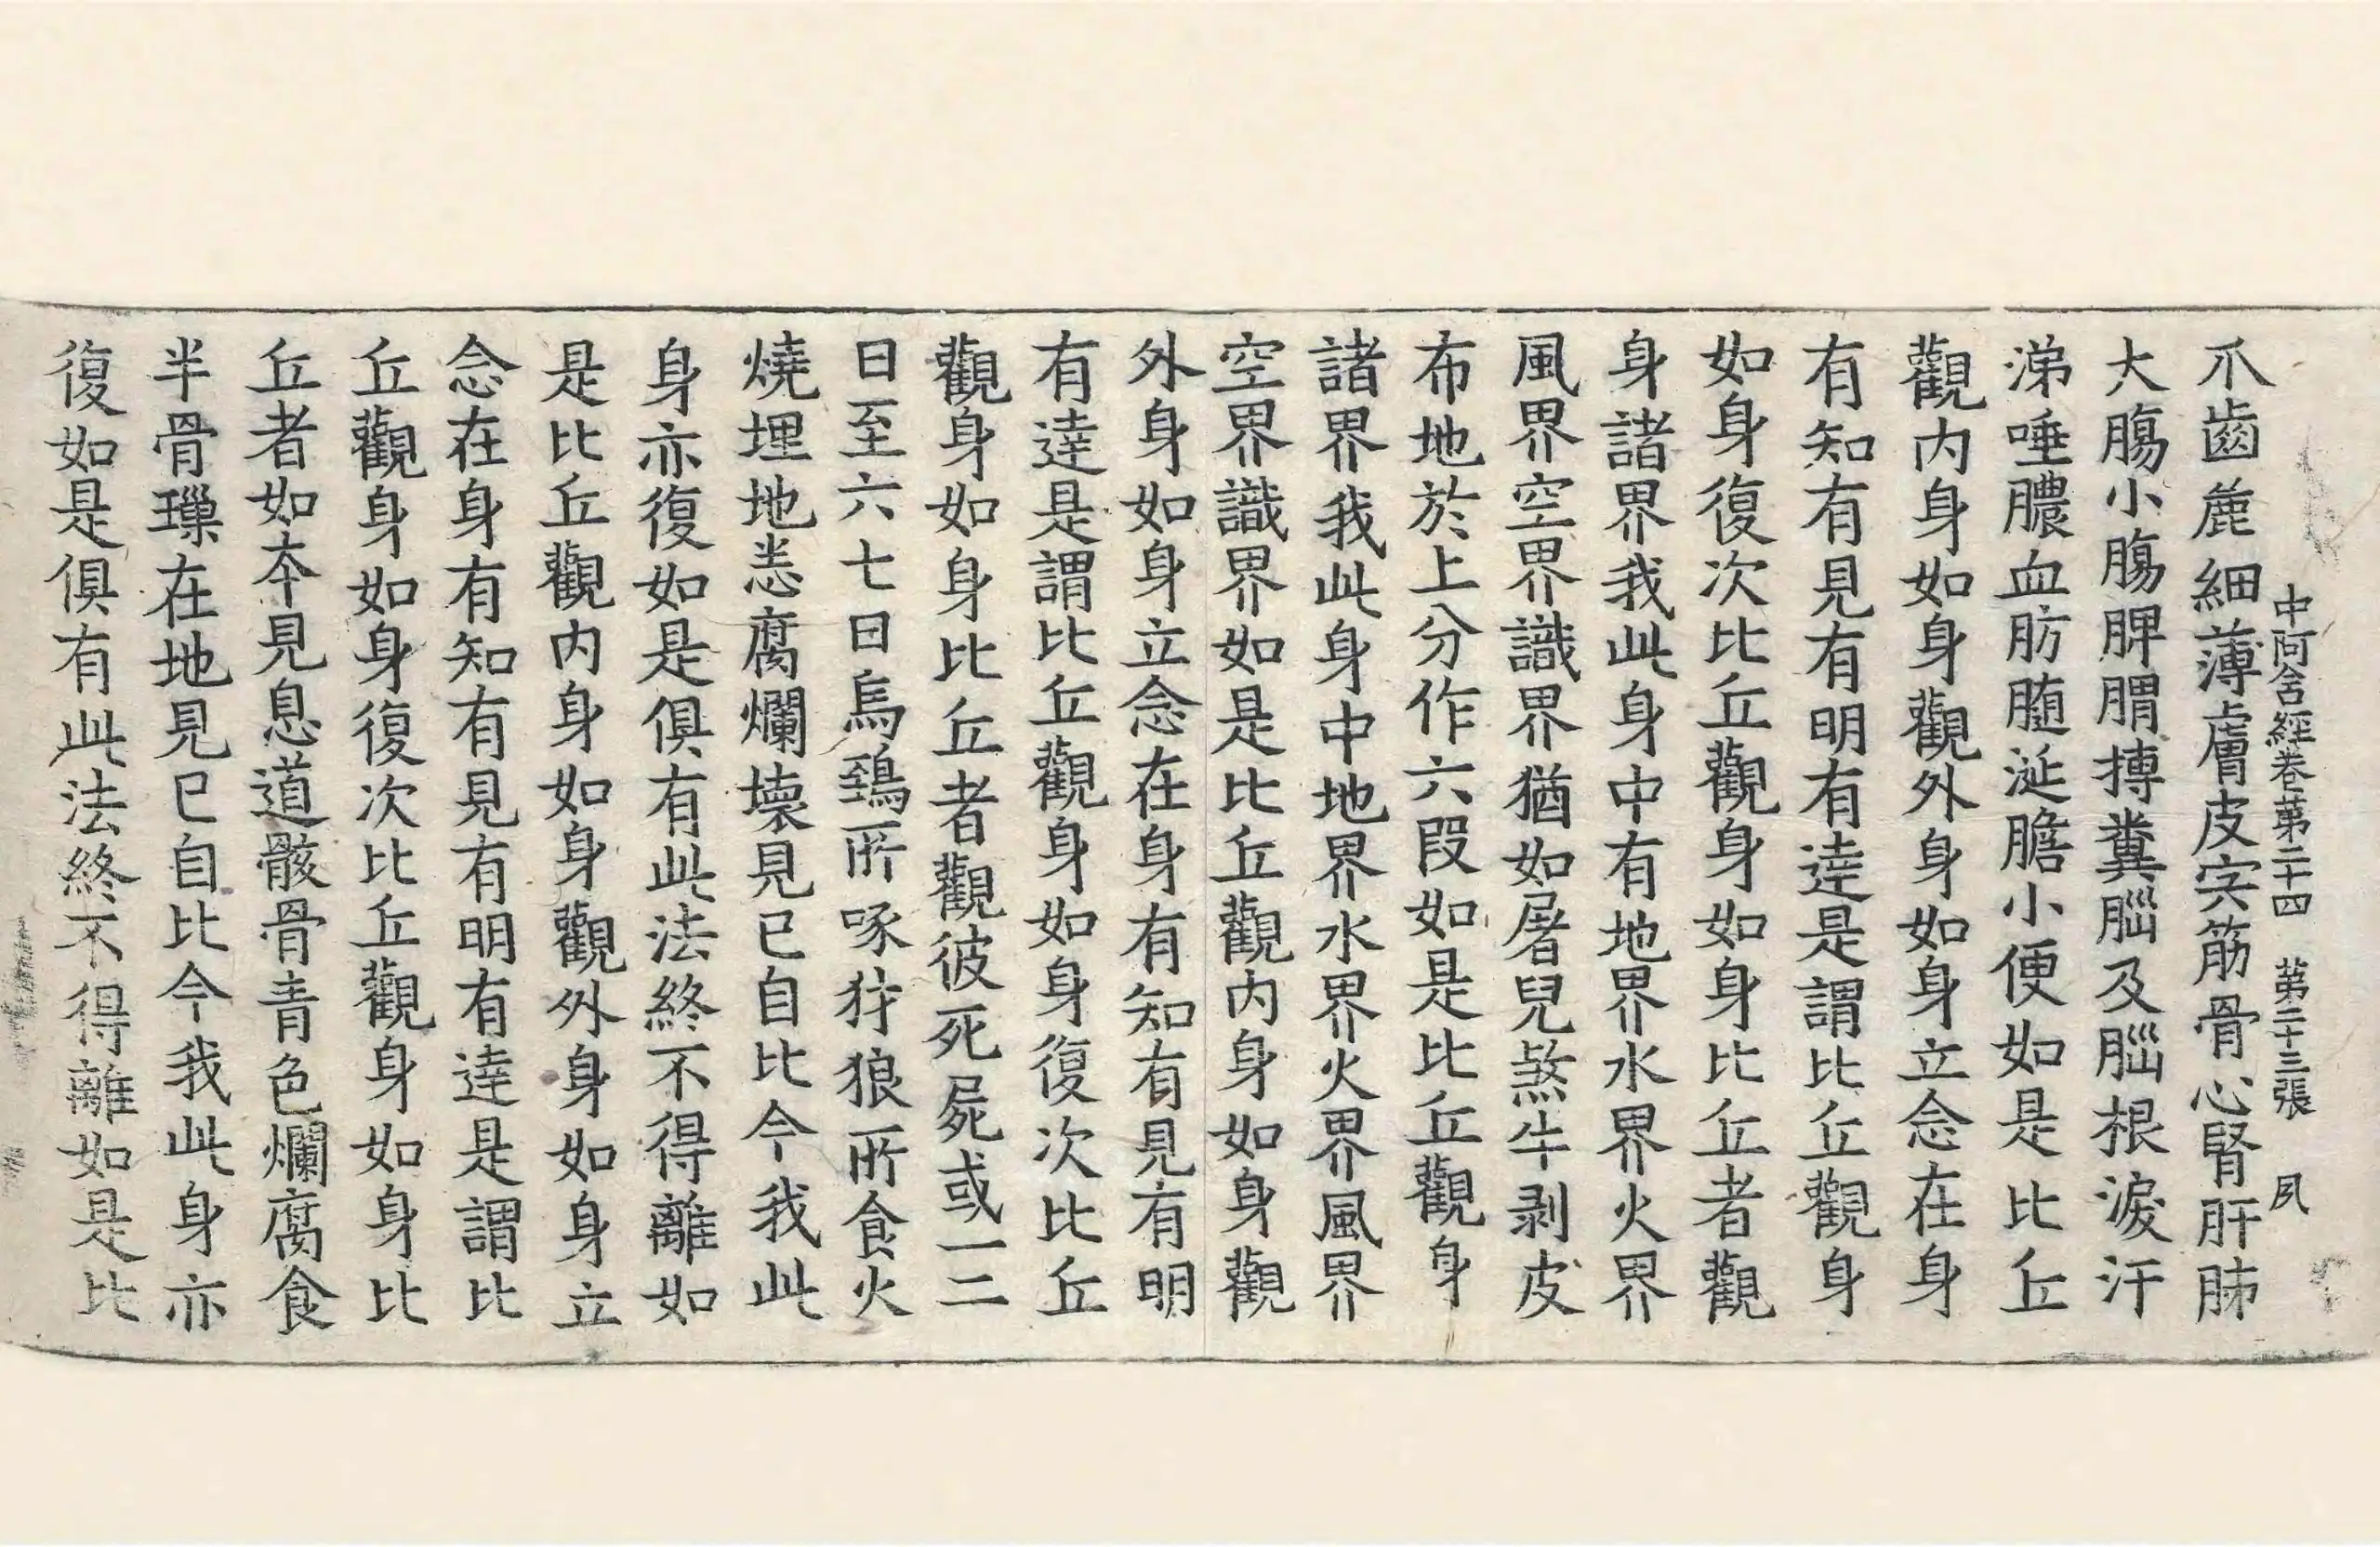 中阿含經卷第二十四 第二十三張 夙
爪齒麁細薄膚皮宍筋骨心腎肝肺
大膓小膓脾胃摶糞𦛁及𦛁根淚汗
涕唾膿血肪髓涎膽小便如是比丘
觀内身如身觀外身如身立念在身
有知有見有明有達是謂比丘觀身
如身復次比丘觀身如身比丘者觀
身諸界我此身中有地界水界火界
風界空界識界猶如屠兒煞牛剥皮
布地於上分作六段如是比丘觀身
諸界我此身中地界水界火界風界
空界識界如是比丘觀内身如身觀
外身如身立念在身有知有見有明
有達是謂比丘觀身如身復次比丘
觀身如身比丘者觀彼死屍或一二
日至六七日烏鵄所啄犲狼所食火
燒埋地悉腐爛壞見已自比今我此
身亦復如是俱有此法終不得離如
是比丘觀内身如身觀外身如身立
念在身有知有見有明有達是謂比
丘觀身如身復次比丘觀身如身比
丘者如本見息道骸骨青色爛腐食
半骨璅在地見已自比今我此身亦
復如是俱有此法終不得離如是比